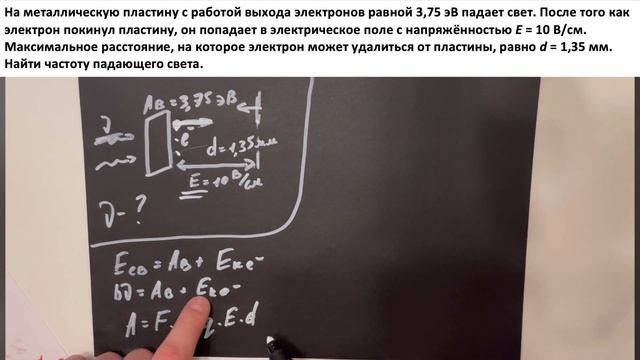 На металлическую пластину с работой выхода электронов равной 3,75 эВ падает свет. После того как
электрон покинул пластину, он попадает в электрическое поле с напряжённостью E = 10 В/см.
Максимальное расстояние, на которое электрон может удалиться от пластины, равно d = 1,35 мм.
Найти частоту падающего света.
Aв = 3,75 эВ
ν
e⁻
d = 1,35мм
E = 10 В/см
ν - ?
Eсв = Aв + Eке⁻
hν = Aв + Eке⁻
A = F · q · E · d